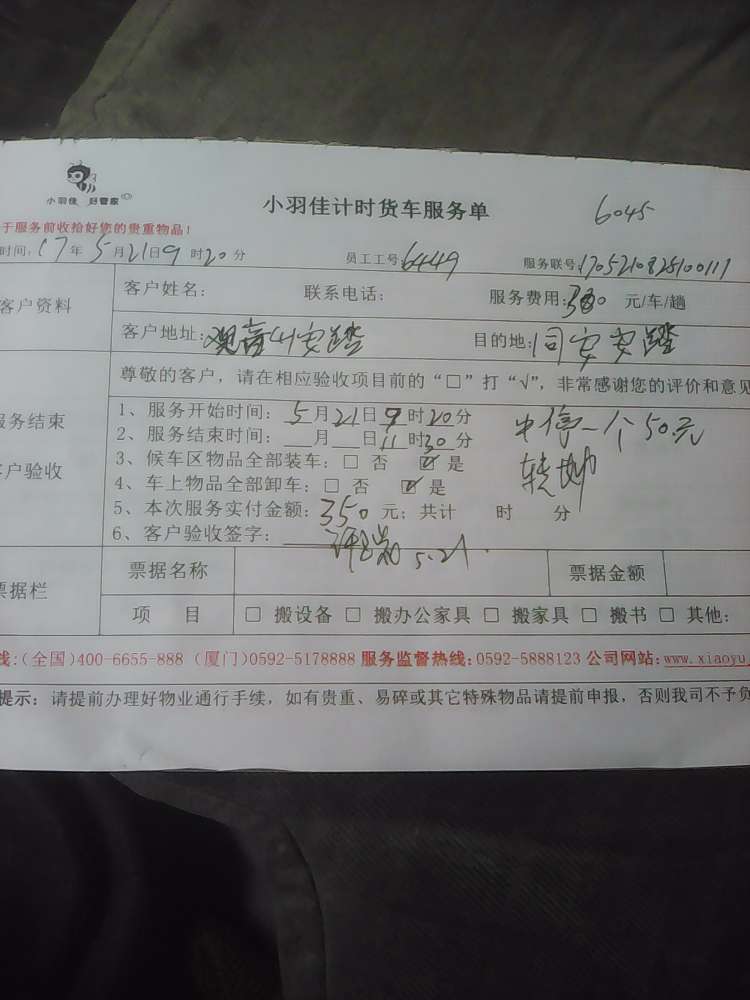 小羽佳 好管家
小羽佳计时货车服务单
6045
于服务前收拾好您的贵重物品！
时间：17年5月21日9时20分 员工工号：6449 服务联号：170521082510011
客户资料
客户姓名： 联系电话： 服务费用：300 元/车/趟
客户地址：观音山安踏 目的地：同安安踏
尊敬的客户，请在相应验收项目前的“□”打“√”，非常感谢您的评价和意见
服务结束
客户验收
1、服务开始时间：5月21日9时20分
2、服务结束时间：___月___日11时30分
中停一个50元
3、候车区物品全部装车：□ 否 ☑ 是
4、车上物品全部卸车：□ 否 ☑ 是
5、本次服务实付金额：350元；共计 时 分
6、客户验收签字： 5.21.
票据栏
票据名称 票据金额
项 目 □ 搬设备 □ 搬办公家具 □ 搬家具 □ 搬书 □ 其他：
线：(全国)400-6655-888 (厦门)0592-5178888 服务监督热线：0592-5888123 公司网站：www.xiaoyu
提示：请提前办理好物业通行手续，如有贵重、易碎或其它特殊物品请提前申报，否则我司不予负